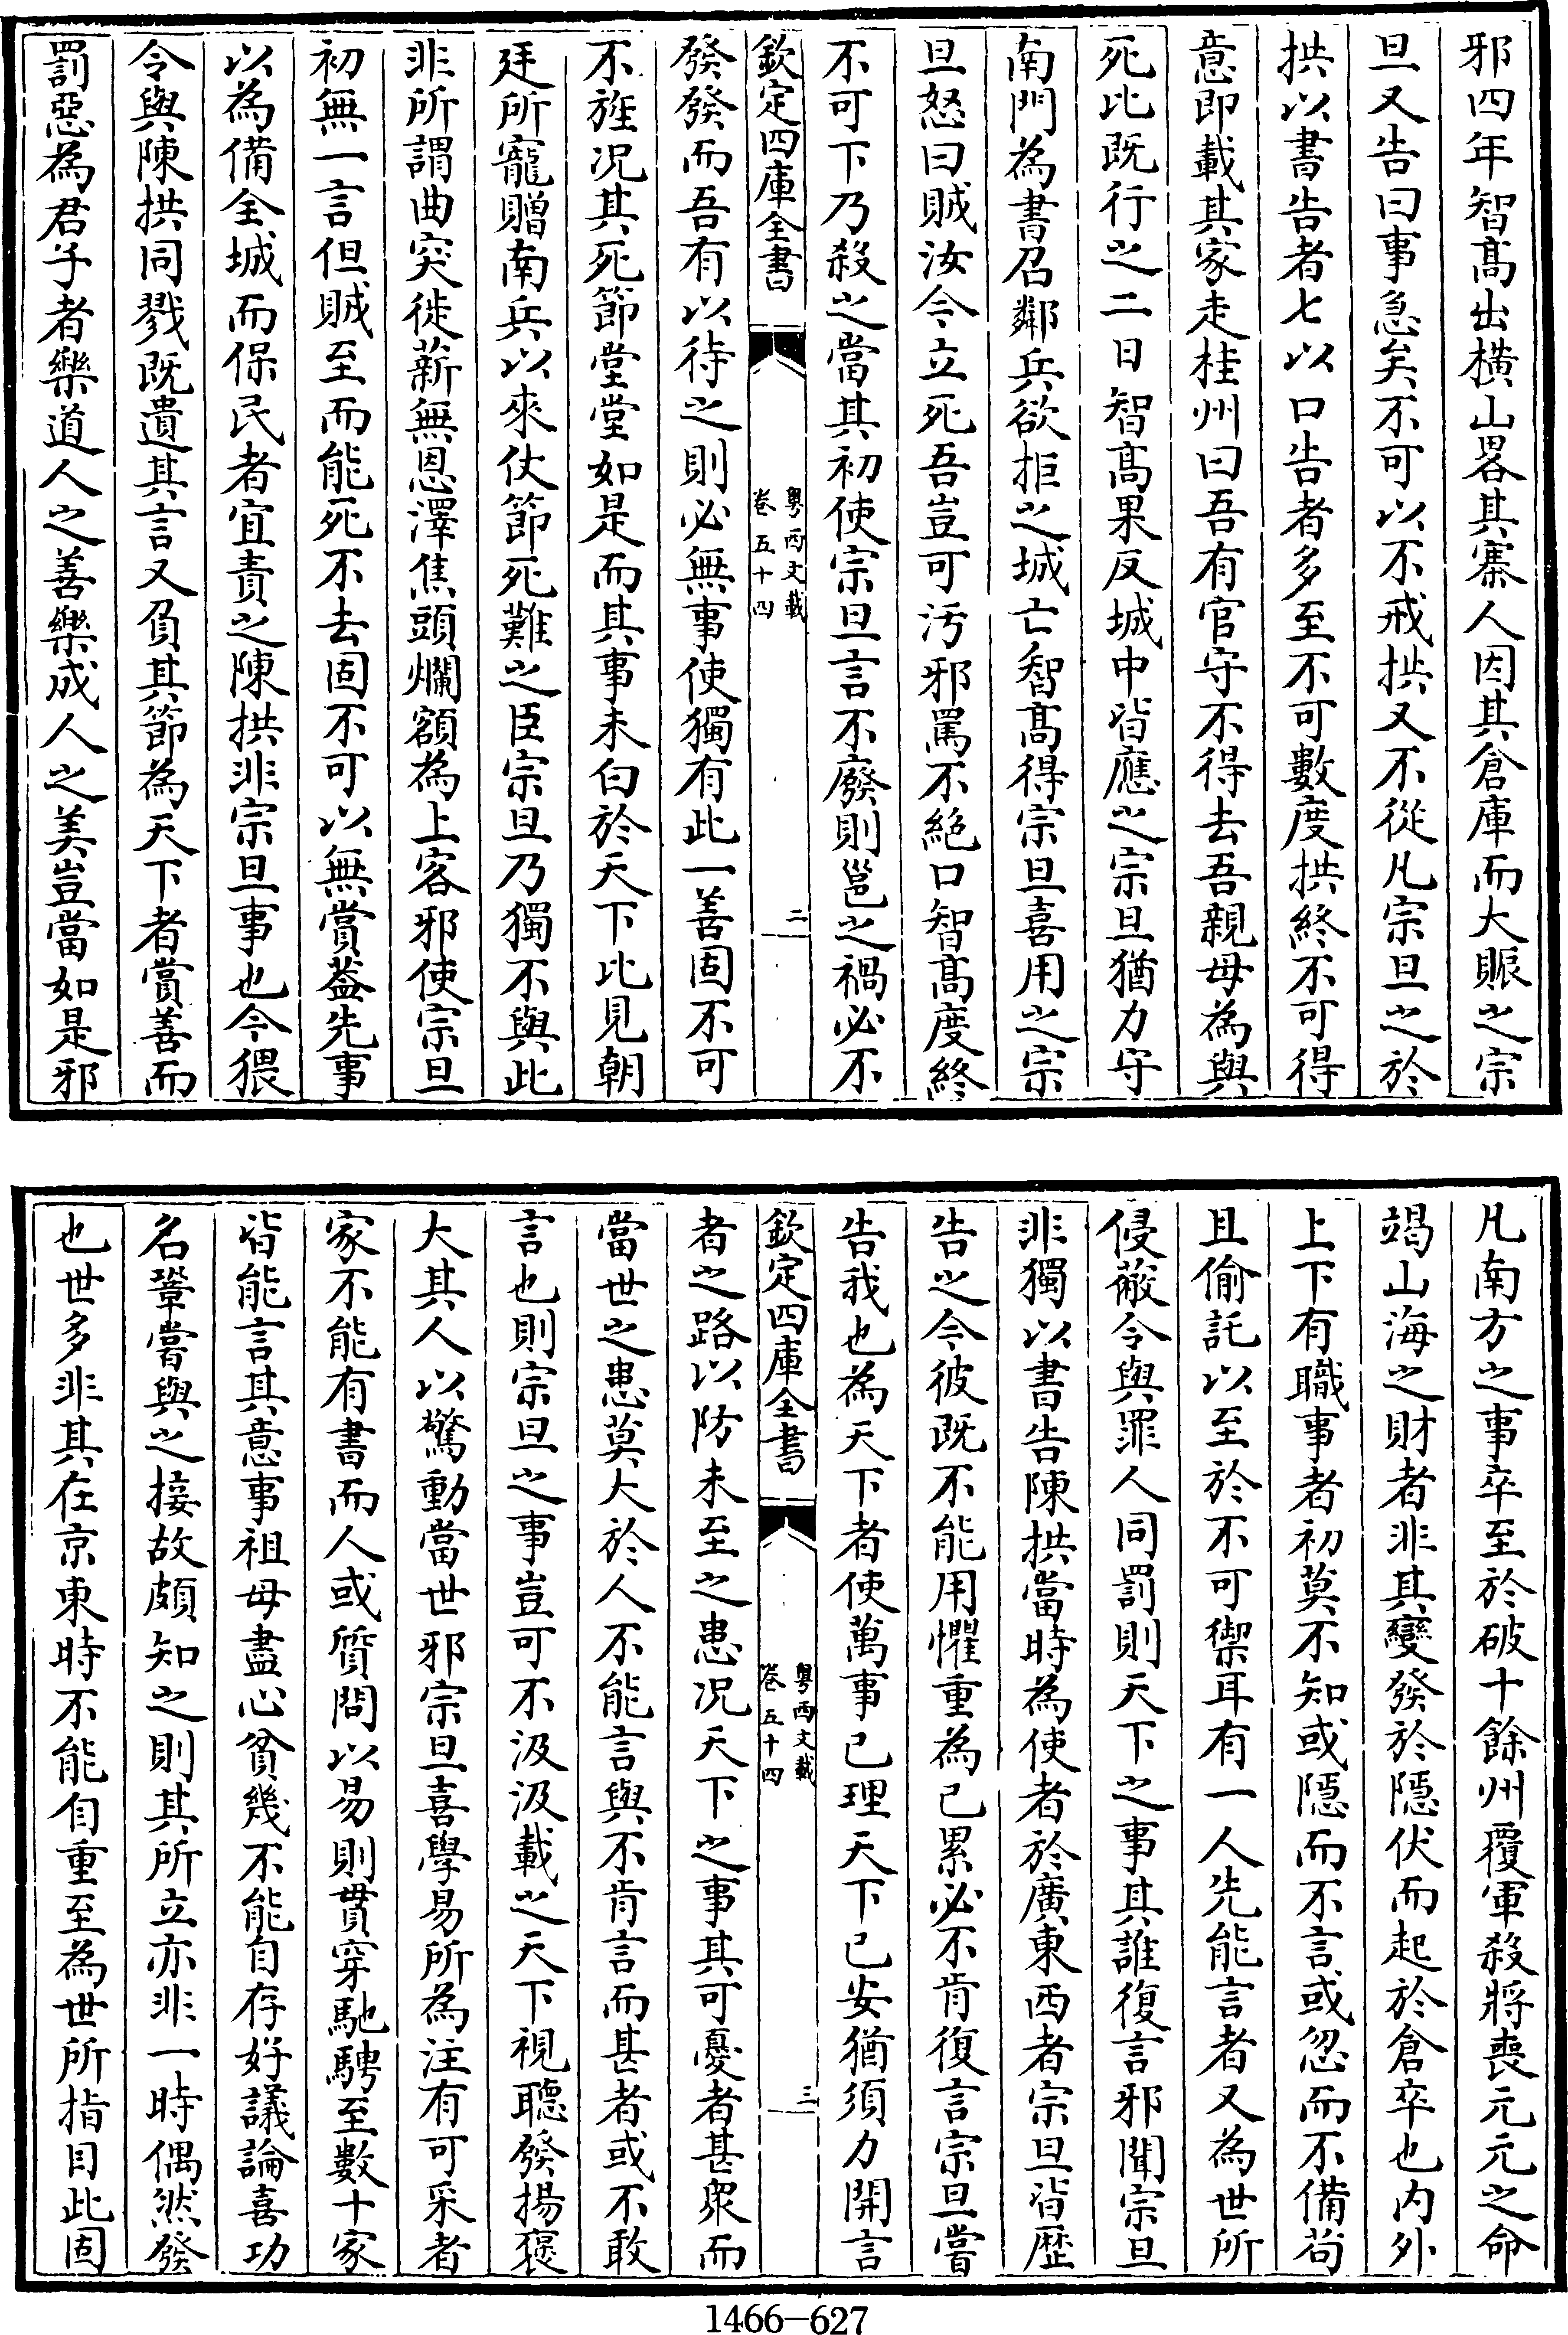 邪四年智髙出横山畧其寨人因其倉庫而大賑之宗
旦又告曰事急矣不可以不戒拱又不從凡宗旦之於
拱以書告者七以口告者多至不可數度拱終不可得
意即載其家走桂州曰吾有官守不得去吾親母為與
死比既行之二日智髙果反城中皆應之宗旦猶力守
南門為書召鄰兵欲拒之城亡智髙得宗旦喜用之宗
旦怒曰賊汝今立死吾豈可汚邪罵不絶口智髙度終
不可下乃殺之當其初使宗旦言不廢則邕之禍必不
欽定四庫全書
粤西文載
卷五十四
二
發發而吾有以待之則必無事使獨有此一善固不可
不旌况其死節堂堂如是而其事未白於天下比見朝
廷所寵贈南兵以來仗節死難之臣宗旦乃獨不與此
非所謂曲突徙薪無恩澤焦頭爛額為上客邪使宗旦
初無一言但賊至而能死不去固不可以無賞葢先事
以為備全城而保民者宜責之陳拱非宗旦事也今猥
令與陳拱同戮既遺其言又負其節為天下者賞善而
罰惡為君子者樂道人之善樂成人之美豈當如是邪
凡南方之事卒至於破十餘州覆軍殺將喪元元之命
竭山海之財者非其變發於隱伏而起於倉卒也内外
上下有職事者初莫不知或隱而不言或忽而不備茍
且偷託以至於不可禦耳有一人先能言者又為世所
侵蔽令與罪人同罰則天下之事其誰復言邪聞宗旦
非獨以書告陳拱當時為使者於廣東西者宗旦皆歴
告之今彼既不能用懼重為已累必不肯復言宗旦嘗
告我也為天下者使萬事已理天下已安猶須力開言
欽定四庫全書
粤西文載
卷五十四
三
者之路以防未至之患况天下之事其可憂者甚衆而
當世之患莫大於人不能言與不肯言而甚者或不敢
言也則宗旦之事豈可不汲汲載之天下視聽發揚褒
大其人以驚動當世邪宗旦喜學易所為注有可采者
家不能有書而人或質問以易則貫穿馳騁至數十家
皆能言其意事祖母盡心貧幾不能自存好議論喜功
名鞏嘗與之接故頗知之則其所立亦非一時偶然發
也世多非其在京東時不能自重至為世所指目此固
1466-627